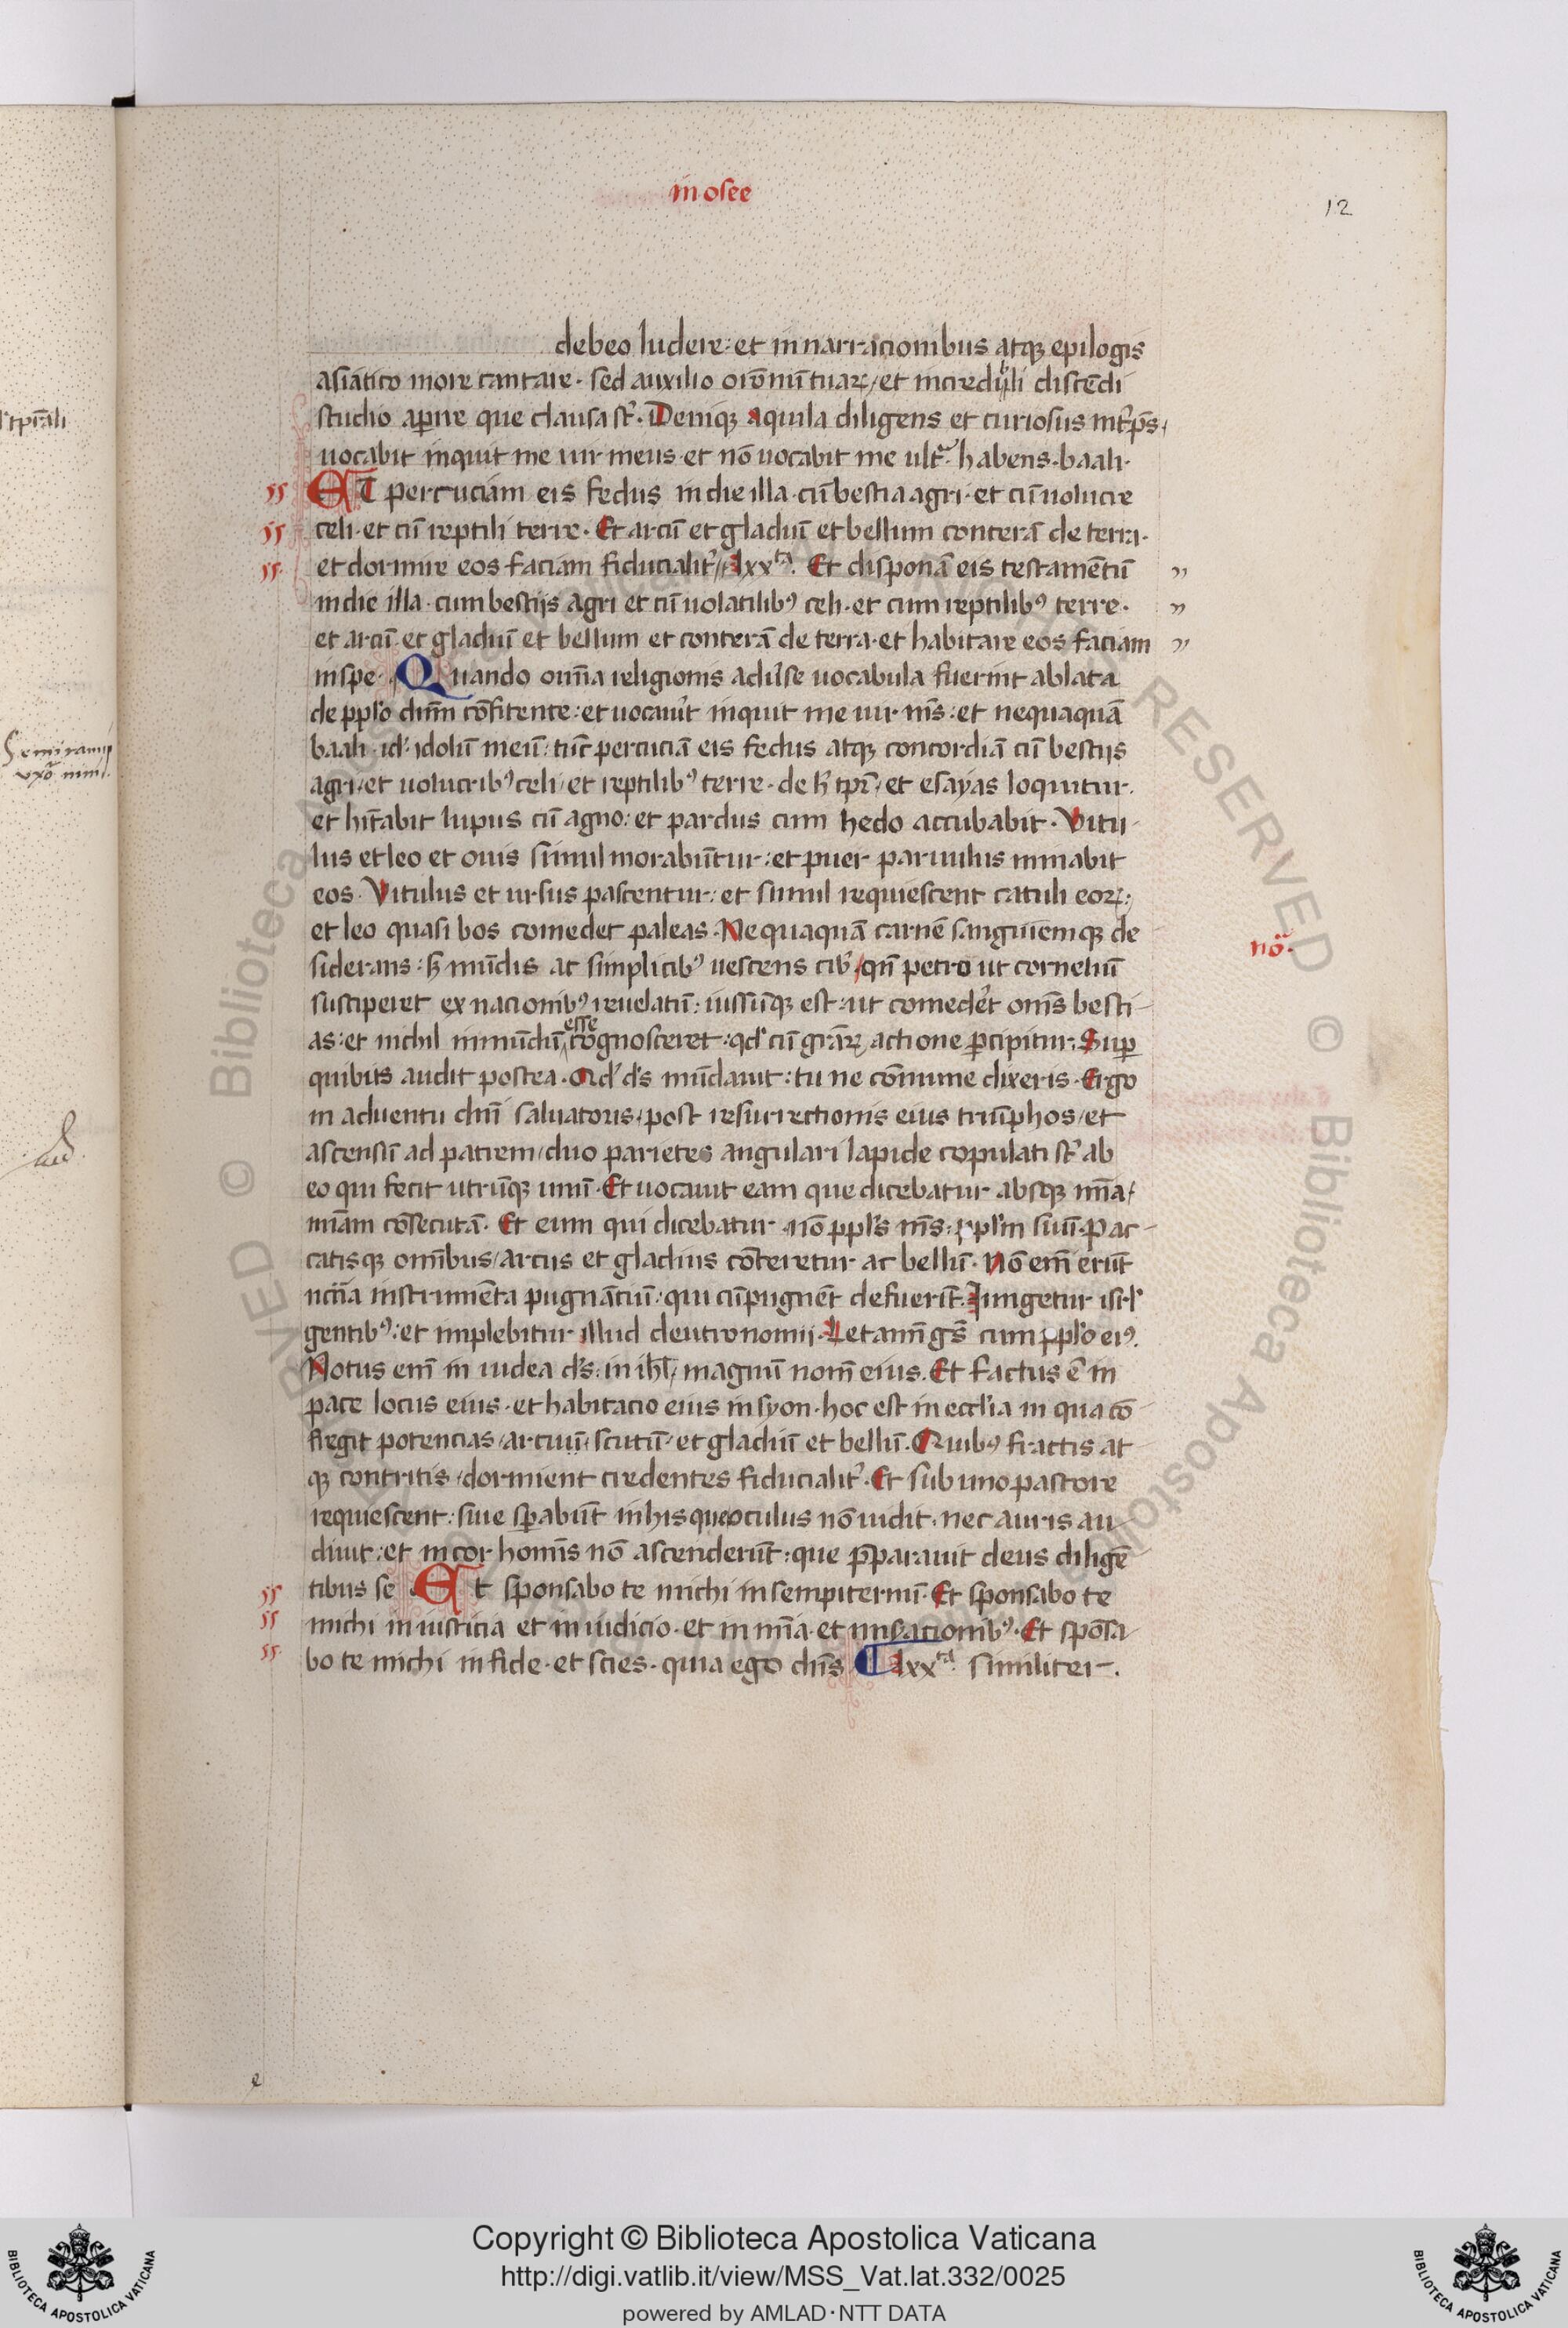 in osee
12
debeo ludere: et in narracionibus atqꝫ epilogis
asiatico more cantare. sed auxilio orōnū tuaꝝ/ et incredubili discēdi
studio aꝑire que clausa st̄. Deniqꝫ aquila diligens et curiosus int̄p̄s,
uocabit inquit me uir meus. et nō uocabit me ult̄ᵃ habens. baali.
ET percuciam eis fedus in die illa. cū bestia agri. et cū uolucre
celi. et cū reptili terre. Et arcū et gladiū et bellum conterā de terra.
et dormire eos faciam fiducialit̄/ lxxᵗᵃ. Et disponā eis testamētū
in die illa. cum bestijs agri et cū uolatilibꝰ celi. et cum reptilibꝰ terre.
et arcū et gladiū et bellum et conterā de terra. et habitare eos faciam
in spe. Quando om̄ia religionis adu̓se uocabula fuerint ablata
de ppl̓o dn̄m cōfitente: et uocauit̓ inquit me uir m̄s: et nequaquā
baali. id̓. idolū meū: tūc percuciā eis fedus atqꝫ concordiā cū bestijs
agri/ et uolucribꝰ celi/ et reptilibꝰ terre. de h̓ tp̄r̄/ et esayas loquitur.
et hit̄abit lupus cū agno: et pardus cum hedo accubabit. Vitu
lus et leo et ouis simul morabūtur: et puer paruulus minabit
eos. Vitulus et ursus pascentur: et simul requiescent catuli eoꝝ:
et leo quasi bos comedet paleas. Nequaquā carnē sanguiēmqꝫ de
siderans: sꝫ mūdis ac simplicibꝰ uescens cib̓/ qn̄ petro ut corneliū
susciperet ex nacionibꝰ reuelatū: iussūqꝫ est: ut comeder̓t om̄s besti
as: et nichil inmūdū esse cognosceret: qd̓ cū gr̄aꝝ actione ꝑcipitur. Suꝑ
quibus audit postea. Qd̓ d̓s mūdauit: tu ne cōmune dixeris. Ergo
in aduentu dn̄i saluatoris, post resurrectionis eius triūphos/ et
ascensū ad patrem/ duo parietes angulari lapide copulati st̄ ab
eo qui fecit utrūqꝫ unū. Et uocauit eam que dicebatur absqꝫ mīa/
mīam cōsecutā. Et eum qui dicebatur nō ppl̓s m̄s: ppl̓m suū. Pac
catisqꝫ omībus/ arcus et gladius cōteretur ac bellū. Nō em̄ erūt
nc̄c̄ia instrumēta pugnāciū: qui cū pugnēt defuerīt. Iungetur isrl̓
gentibꝰ: et implebitur illud deutronomij. Letamī gs̄ cum ppl̓o eiꝰ.
Notus em̄ in iudea d̓s: in ihl̄/ magnū nom̄ eius. Et factus ē in
pace locus eius. et habitacio eius in syon. hoc est in eccl̓ia in qua cō
fregit potencias/ arcuū/ scutū/ et gladiū et bellū. Quibꝰ fractis at
qꝫ contritis/ dormient credentes fiducialit̓. Et sub uno pastore
requiescent: siue sꝑabūt in his que oculus nō uidit. nec auris au
diuit: et in cor homīs nō ascenderūt: que p̄parauit deus diligē
tibus se Et sponsabo te michi in sempiternū. Et sponsabo te
michi in iusticia et in iudicio. et in mīa. et misacionibꝰ. Et spōsa
bo te michi in fide. et scies. quia ego dn̄s lxxᵗᵃ. similiter.
nō.
tpr̄ali
Semiramis
vxor nini.
e
Copyright © Biblioteca Apostolica Vaticana
http://digi.vatlib.it/view/MSS_Vat.lat.332/0025
powered by AMLAD·NTT DATA
BIBLIOTECA APOSTOLICA VATICANA
BIBLIOTECA APOSTOLICA VATICANA